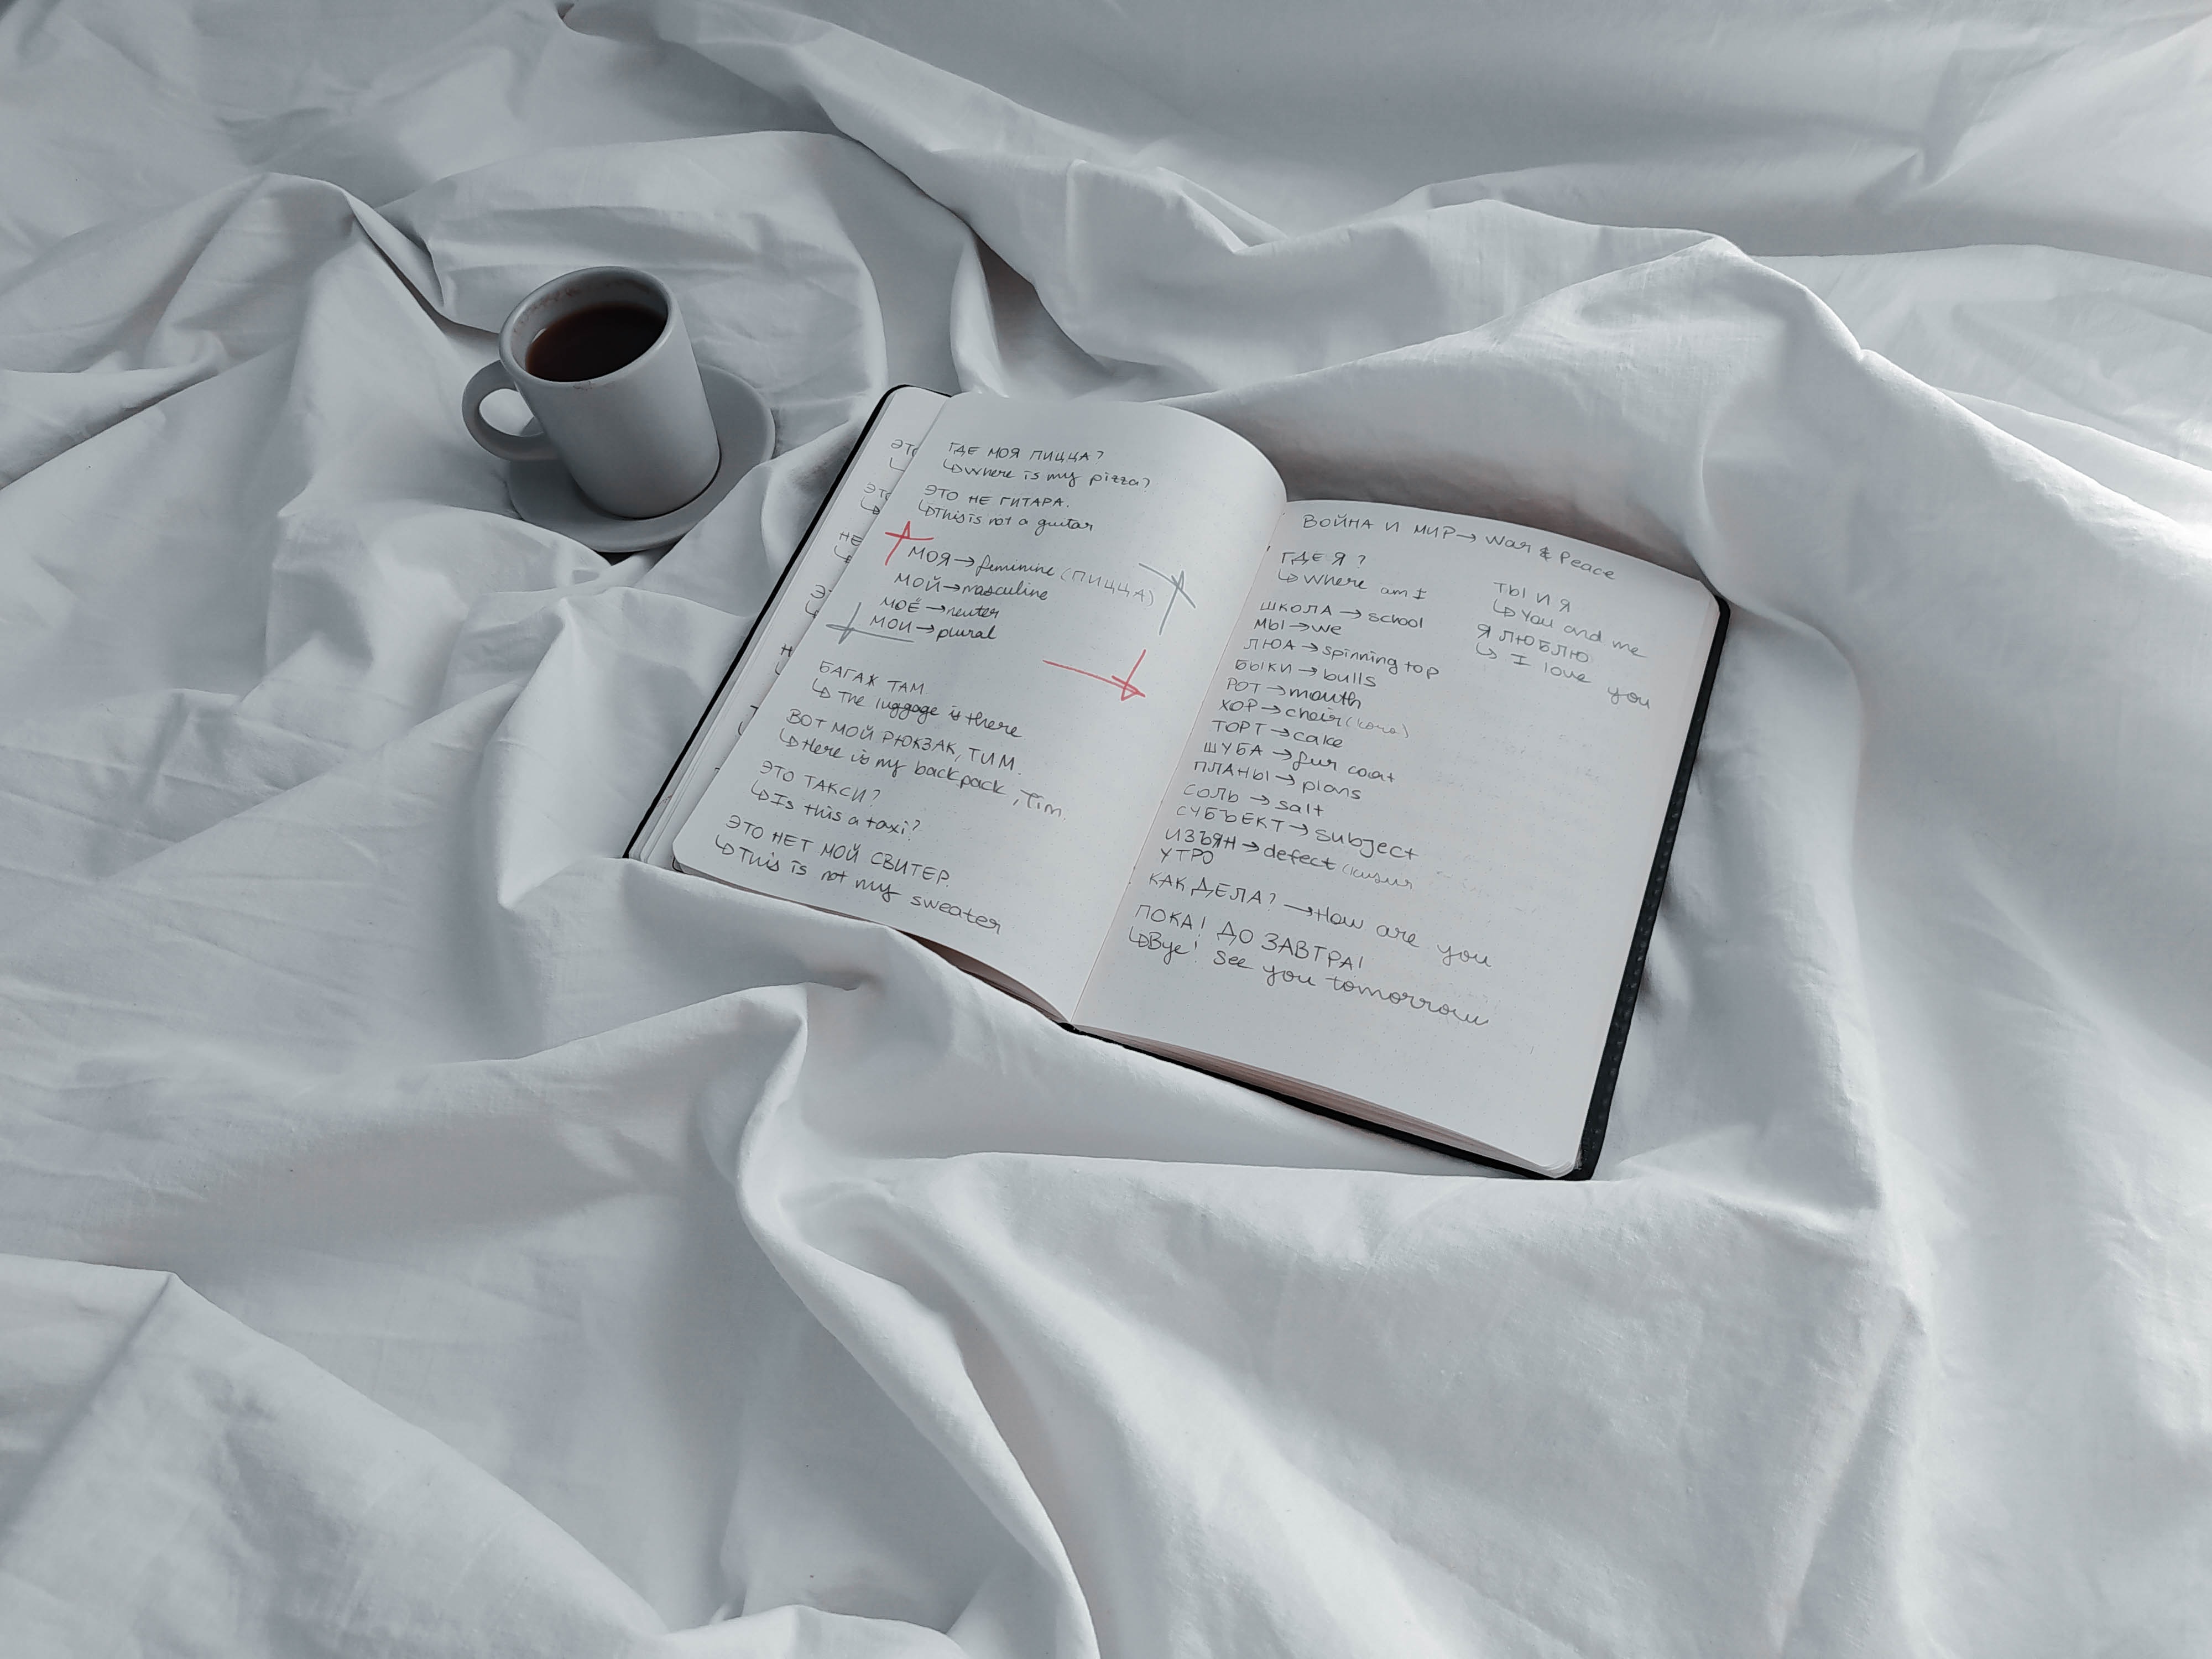 ГДЕ МОЯ ПИЦЦА?
↳Where is my pizza?
ЭТО НЕ ГИТАРА.
↳This is not a guitar
МОЯ→feminine (ПИЦЦА)
МОЙ→masculine
МОЁ→neuter
МОИ→plural
БАГАЖ ТАМ
↳The luggage is there
ВОТ МОЙ РЮКЗАК, ТИМ.
↳Here is my backpack, Tim.
ЭТО ТАКСИ?
↳Is this a taxi?
ЭТО НЕТ МОЙ СВИТЕР.
↳This is not my sweater
ВОЙНА И МИР→War & Peace
ГДЕ Я?
↳Where am I
ШКОЛА→school
МЫ→we
ЛЮА→spinning top
БЫКИ→bulls
РОТ→mouth
ХОР→choir
ТОРТ→cake
ШУБА→fur coat
ПЛАНЫ→plans
СОЛЬ→salt
СУБЪЕКТ→subject
ИЗЪЯН→defect
УТРО
КАК ДЕЛА?→How are you
ПОКА! ДО ЗАВТРА!
↳Bye! See you tomorrow
ТЫ И Я
↳You and me
Я ЛЮБЛЮ
↳I love you